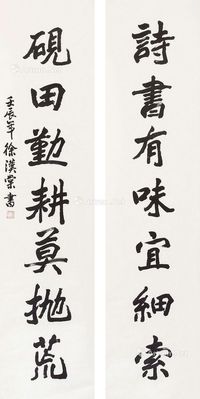 詩書有味宜細索
硯田勤耕莫拋荒
壬辰年徐漢棠書